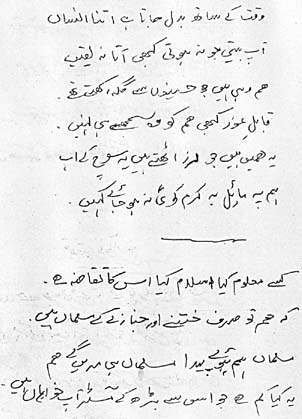 وقت کے ساتھ بدل جاتا ہے اتنا انساں
آپ بیتی جو نہ ہوتی کبھی آتا نہ یقیں
ہم وہی ہیں جو حسینوں سے گلہ رکھتے تھے
قابل غور کبھی ہم کو وہ سمجھے ہی نہیں۔
یہ ہمیں ہیں جو لرز اٹھتے ہیں یہ سوچ کے اب
ہم پہ مائل بہ کرم کوئی نہ ہو جائے کہیں۔
کسے معلوم کیا اسلام کیا اس کا تقاضہ ہے۔
کہ ہم تو صرف ختنے اور جنازے کے مسلماں ہیں۔
مسلماں ہم ہوئے پیدا مسلماں ہی مریں گے ہم
یہ کیا کم ہے جو اس سے بڑھ کے آپ خواہاں ہیں۔